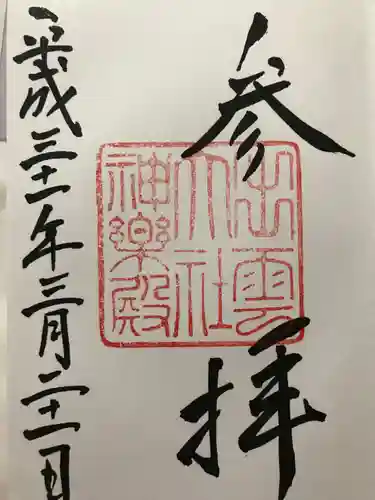 参拝
出雲
大社
神楽殿
平成三十一年三月二十一日